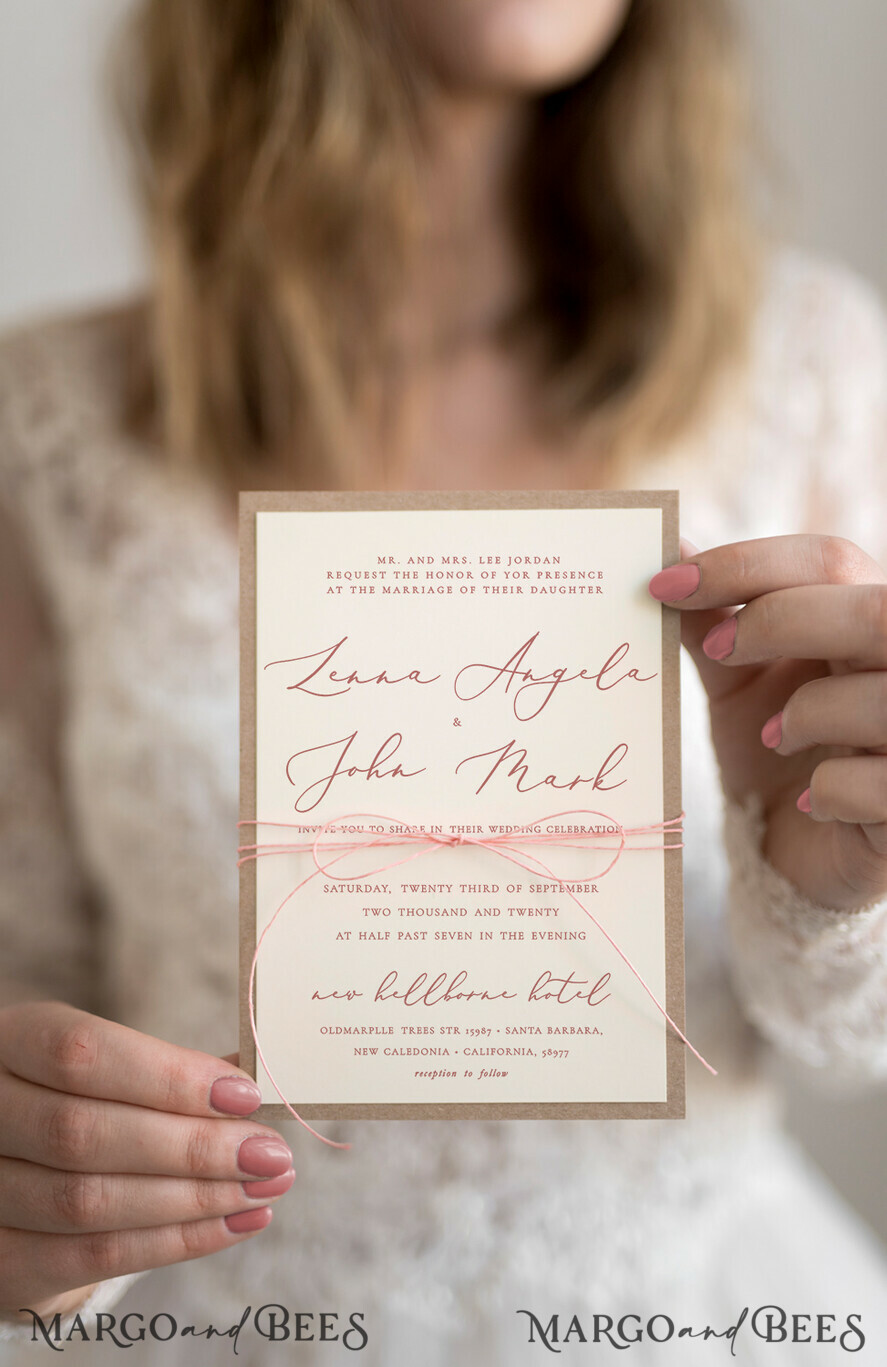 MR. AND MRS. LEE JORDAN
REQUEST THE HONOR OF YOR PRESENCE
AT THE MARRIAGE OF THEIR DAUGHTER
Lenna Angela
&
John Mark
INVITE YOU TO SHARE IN THEIR WEDDING CELEBRATION
SATURDAY, TWENTY THIRD OF SEPTEMBER
TWO THOUSAND AND TWENTY
AT HALF PAST SEVEN IN THE EVENING
new hellborne hotel
OLDMARPLLE TREES STR 15987 • SANTA BARBARA,
NEW CALEDONIA • CALIFORNIA, 58977
reception to follow
MARGO and BEES MARGO and BEES